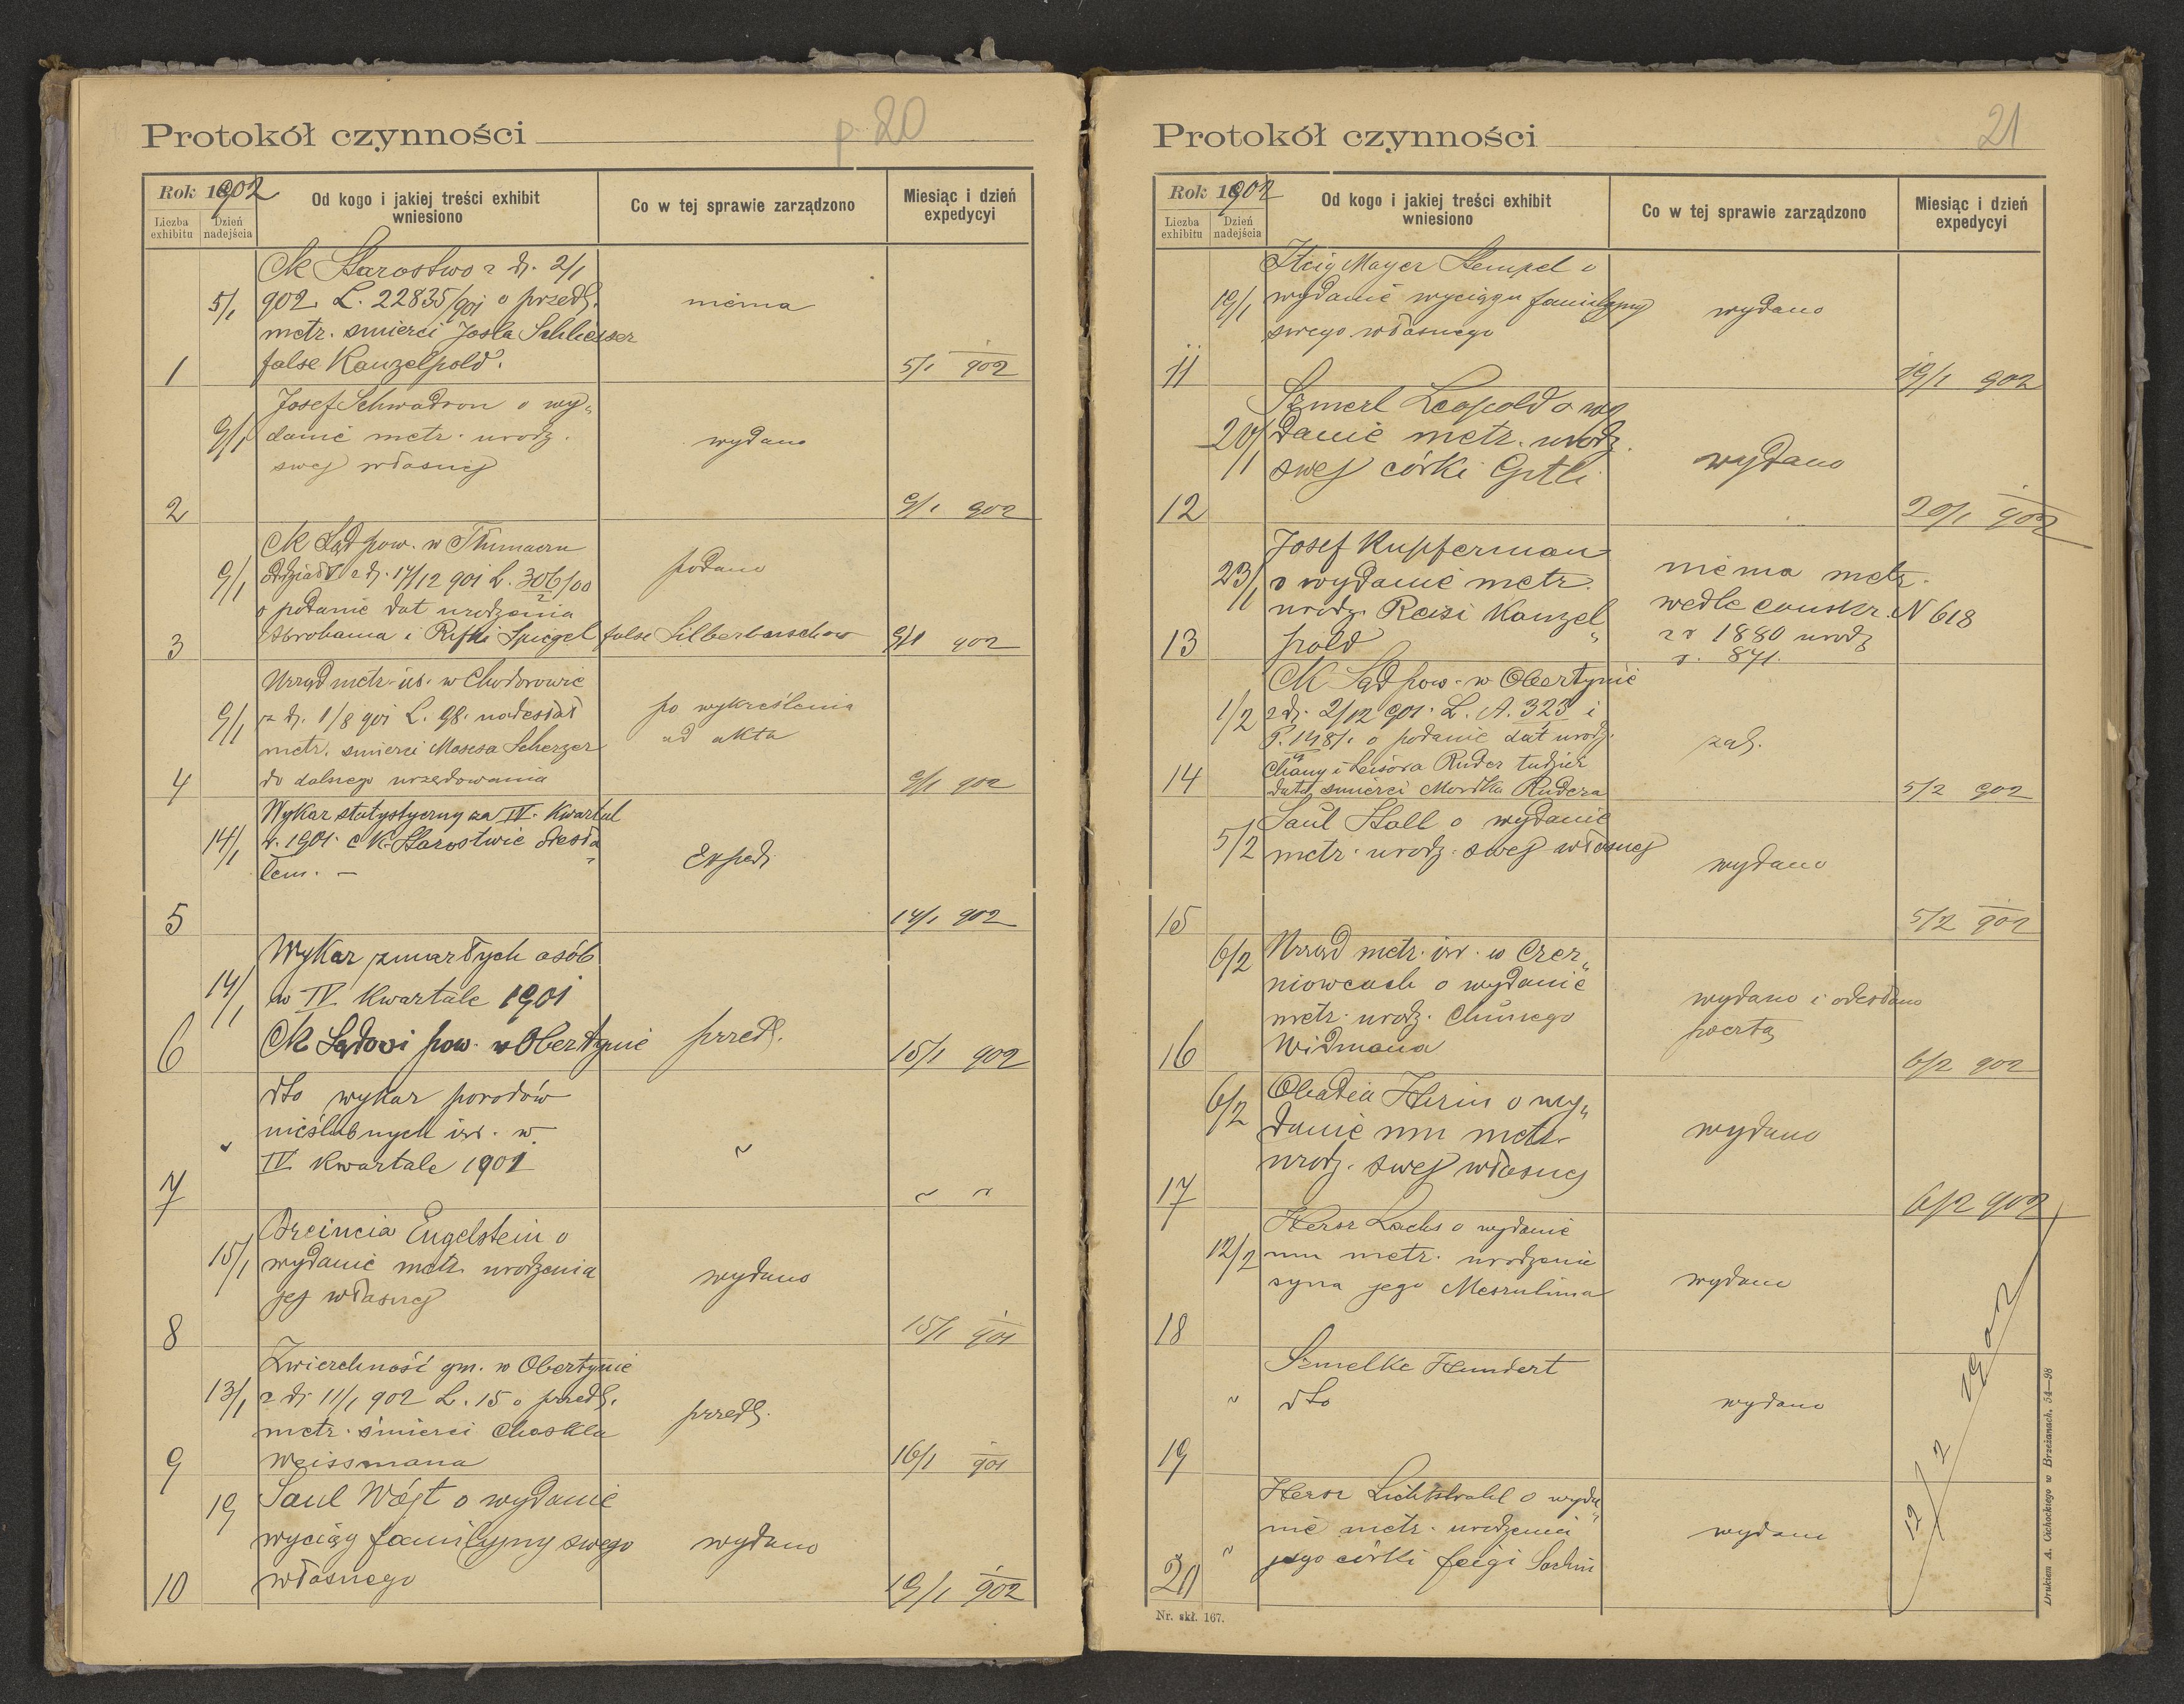 p 20
Protokół czynności
Rok 1902
Liczba exhibitu
Dzień nadejścia
Od kogo i jakiej treści exhibit wniesiono
Co w tej sprawie zarządzono
Miesiąc i dzień expedycyi
CK Starostwo z d. 2/1
5/1 902 L. 22835/901 o przedł. niema
metr. smierci Josla Schliesser
1 false Kanzelpold. 5/1 902
Josef Schwadron o wy„
9/1 danie metr. urodz. wydano
swej własnej
2 9/1 902
CK Sąd pow. w Tłumaczu
9/1 Oddział V z d. 17/12 901 L. 306/00 podano
o podanie dat urodzenia
3 Abrahama i Rifki Spiegel false Silberbuschow 9/1 902
Urząd metr. izr. w Chodorowie
9/1 z d. 1/8 901 L. 98. nadesłał po wykreśleniu
metr. smierci Mosesa Scherzer ad akta
4 do dalszego urzędowania 9/1 902
Wykaz statystyczny za IV. Kwartał
14/1 r. 1901. c K. Starostwie odesła„ Exped.
łem. —
5 14/1 902
Wykaz zmarłych osób
14/1 w IV Kwartale 1901
6 CK Sądowi pow. w Obertynie przedł. 15/1 902
dto wykaz porodów
" nieślubnych izr. w "
IV Kwartale 1901
7 " "
Dreincia Engelstein o
15/1 wydanie metr. urodzenia wydano
jej własnej
8 15/1 901
Zwierchność gm. w Obertynie
13/1 z d. 11/1 902 L. 15 o przedł. przedł.
metr. śmierci Chaskla
9 Weissmana 16/1 901
19 Saul Wójt o wydanie
wyciąg familyjny swego wydano
10 własnego 19/1 902
21
Protokół czynności
Rok 1902
Liczba exhibitu
Dzień nadejścia
Od kogo i jakiej treści exhibit wniesiono
Co w tej sprawie zarządzono
Miesiąc i dzień expedycyi
Itzig Mayer Stempel o
19/1 wydanie wyciągu familyjny wydano
swego własnego
11 19/1 902
Szmerl Leopold o wy
20/1 danie metr. urodz.
swej córki Gitli wydano
12 20/1 902
Josef Kupferman
23/1 o wydanie metr. niema metr.
urodz. Reisi Kanzel„ wedle conskr. N 618
13 pold z r 1880 urodz
r. 871.
CK Sąd pow. w Obertynie
1/2 z d. 2/12 901. L. A. 323 i
P. 148/ o podanie dat urodz. zał.
Chany i Leisora Ruder tudzież
14 daty smierci Mordka Rudera 5/2 902
Saul Stall o wydanie
5/2 metr. urodz. swej własnej wydano
15 5/2 902
6/2 Urząd metr. izr. w Czer„
niowcach o wydanie wydano i odesłano
metr. urodz. Chunego pocztą
16 Widmana 6/2 902
6/2 Obadia Stein o wy„
danie mu metr. wydano
urodz. swej własnej
17 6/2 902
Hersz Lachs o wydanie
12/2 mu metr. urodzenia
syna jego Meszulima wydano
18
Szmelke Hundert
" dto wydano
19
Hersz Lichtstrahl o wyda„
nie metr. urodzenia wydano
20 " jego córki Feigi Sochni
12/2 1902
Nr. skł. 167.
Drukiem A. Cichockiego w Brzeżanach. 54—98